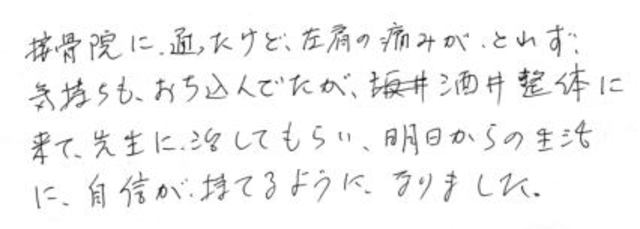 接骨院に、通ったけど、左肩の痛みが、とれず、
気持ちも、おち込んでたが、酒井整体に
来て、先生に、治してもらい、明日からの生活
に、自信が、持てるように、なりました。